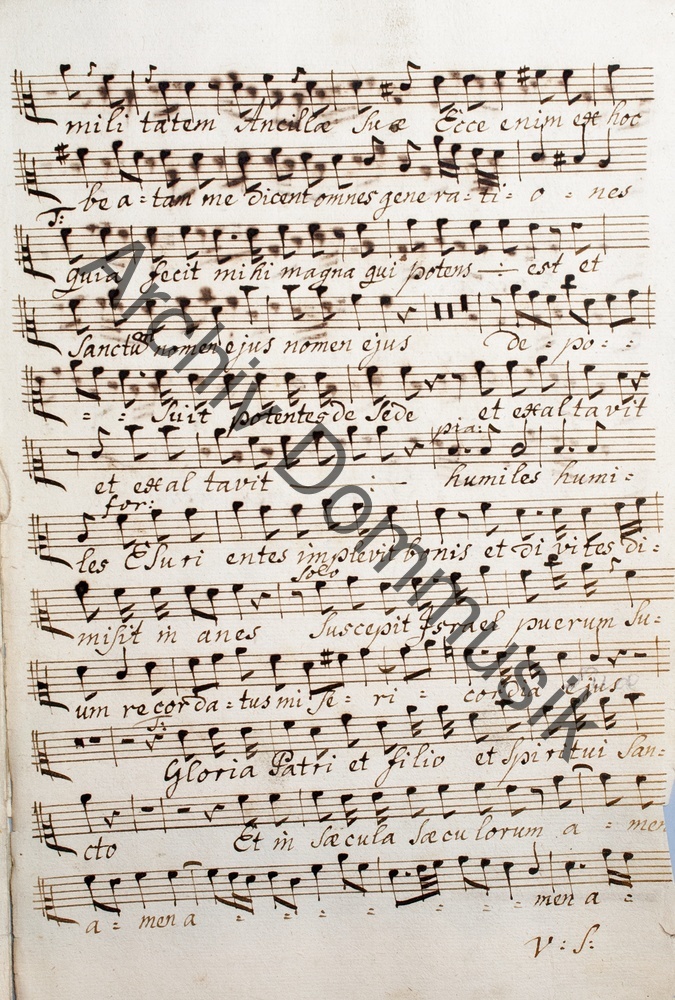 mili tatem Ancillæ Suæ Ecce enim ex hoc
be a = tam me dicent omnes gene ra = ti = o = nes
T:
quia fecit mihi magna qui potens est et
Sanctum nomen ejus nomen ejus de = po = =
= = Suit potentes de Sede et exaltavit
pia:
et exal tavit humiles humi =
for:
les Esuri entes implevit bonis et divites di =
Solo
misit in anes Suscepit Israel puerum Su =
um recorda = tus mi se = ri = cordiæ ejus
T:
Gloria Patri et filio et Spiritui San =
cto Et in Sæcula Sæculorum a = men
a = men a = = = = = = = men a =
V: S:
Archiv Dommusik